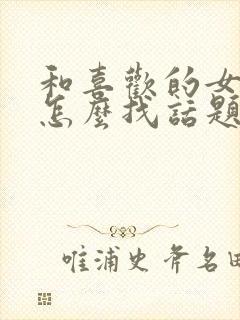 和喜歡的女
怎麼找話題
唯浦史斧名